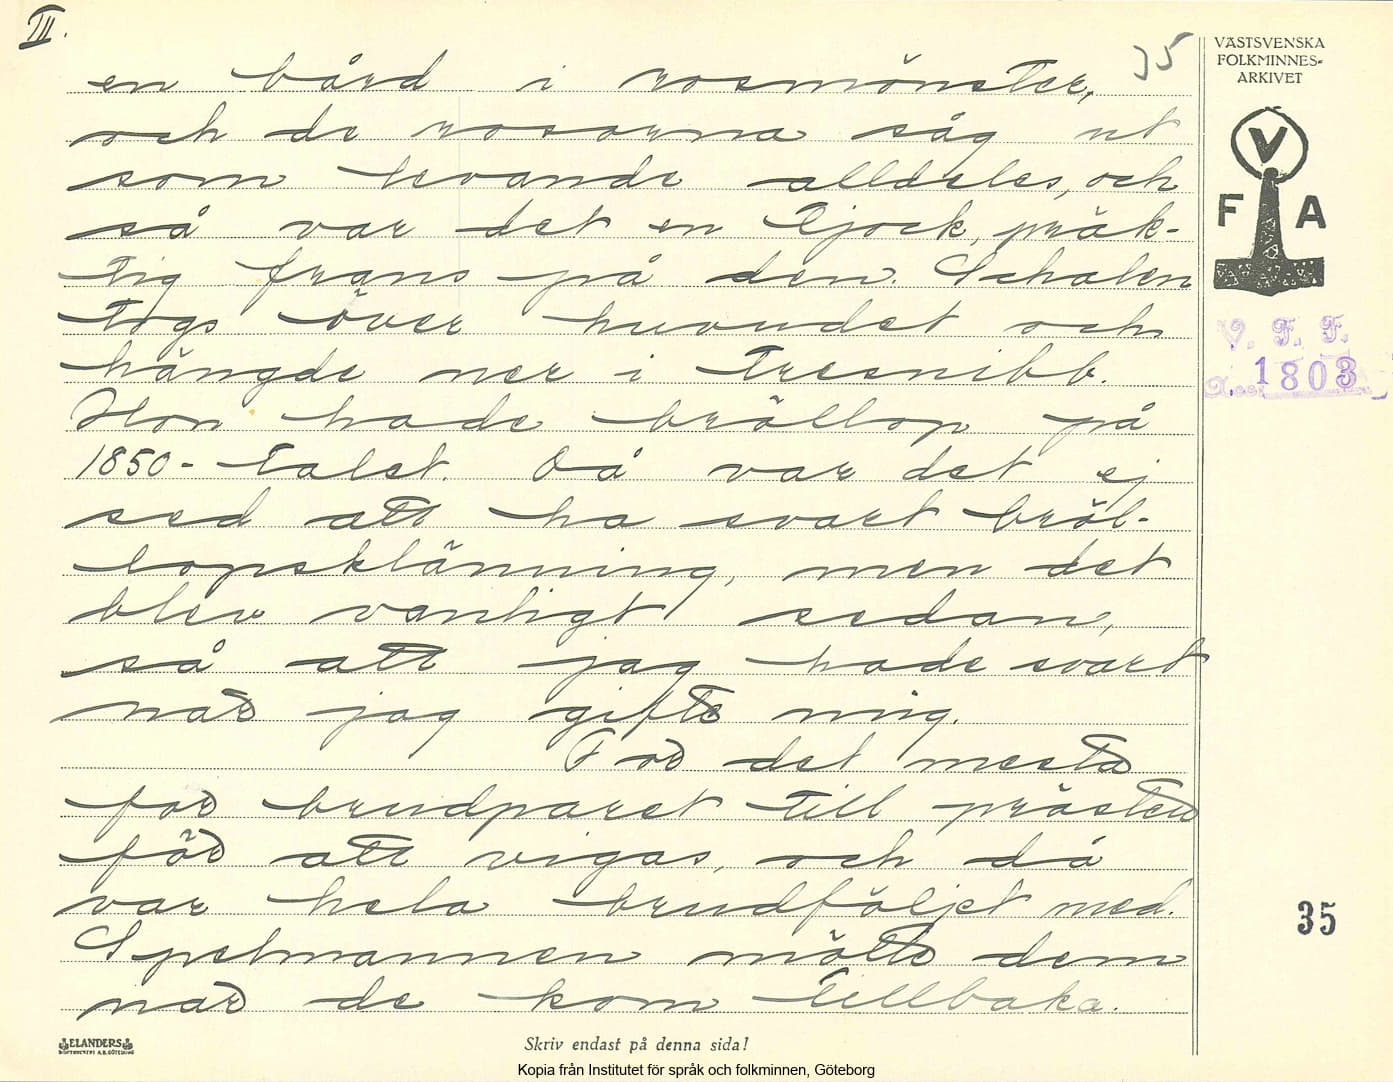 III.
35
en bård i rosmönster,
och de rosorna såg ut
som levande alldeles, och
så var det en tjock, präk-
tig frans på den. Schalen
togs över huvudet och
hängde ner i tresnibb.
Hon hade bröllop på
1850-talet. Då var det ej
sed att ha svart bröl-
lopsklänning, men det
blev vanligt sedan,
så att jag hade svart
när jag gifte mig.
För det mesta
for brudparet till prästen
för att vigas, och då
var hela brudföljet med.
Spelmannen mötte dem
när de kom tillbaka.
VÄSTSVENSKA
FOLKMINNES-
ARKIVET
V
F A
V. F. F.
Acc. 1803
35
ELANDERS
BOKTRYCKERI A.B. GÖTEBORG
Skriv endast på denna sida!
Kopia från Institutet för språk och folkminnen, Göteborg